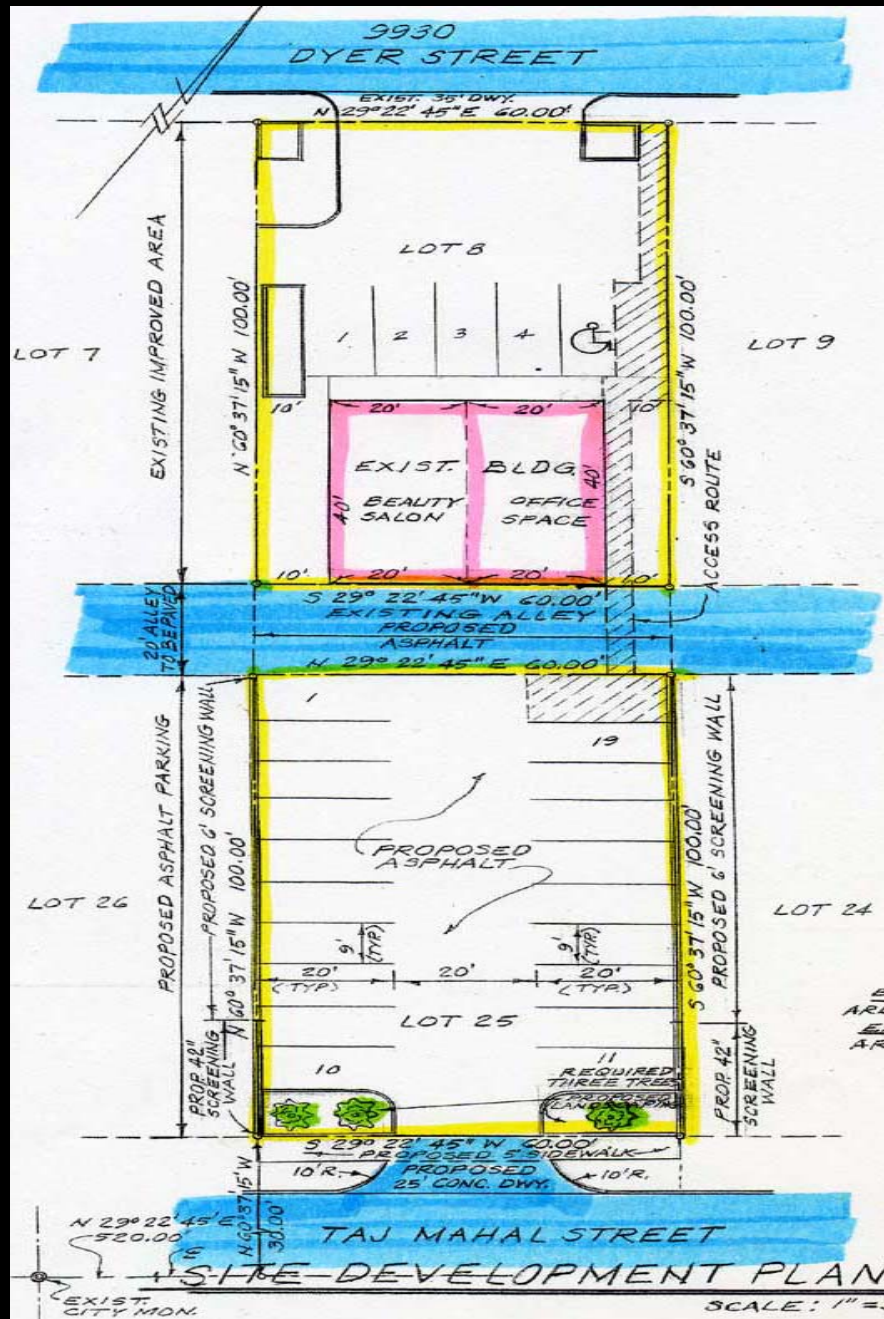 9930
DYER STREET
EXIST. 35' DWY.
N 29° 22' 45" E 60.00'
LOT 8
EXISTING IMPROVED AREA
N 60° 37' 15" W 100.00'
S 60° 37' 15" W 100.00'
LOT 7
LOT 9
1 2 3 4
10' 20' 20' 10'
EXIST. BLDG.
BEAUTY SALON
OFFICE SPACE
40' 40'
ACCESS ROUTE
10' 20' 20' 10'
S 29° 22' 45" W 60.00'
EXISTING ALLEY
PROPOSED
ASPHALT
20' ALLEY
TO BE PAVED
N 29° 22' 45" E 60.00'
1
19
PROPOSED ASPHALT PARKING
PROPOSED 6' SCREENING WALL
N 60° 37' 15" W 100.00'
PROPOSED
ASPHALT
S 60° 37' 15" W 100.00'
PROPOSED 6' SCREENING WALL
LOT 26
LOT 24
9'
(TYP.)
9'
(TYP.)
20'
(TYP.)
20'
20'
(TYP.)
LOT 25
PROP. 42"
SCREENING
WALL
PROP. 42"
SCREENING
WALL
10
11
REQUIRED
THREE TREES
PROPOSED
S 29° 22' 45" W 60.00'
PROPOSED 5' SIDEWALK
10'R.
PROPOSED
25' CONC. DWY.
10'R.
N 60° 37' 15" W
30.00'
N 29° 22' 45" E
520.00'
TAJ MAHAL STREET
SITE DEVELOPMENT PLAN
EXIST.
CITY MON.
SCALE: 1" =